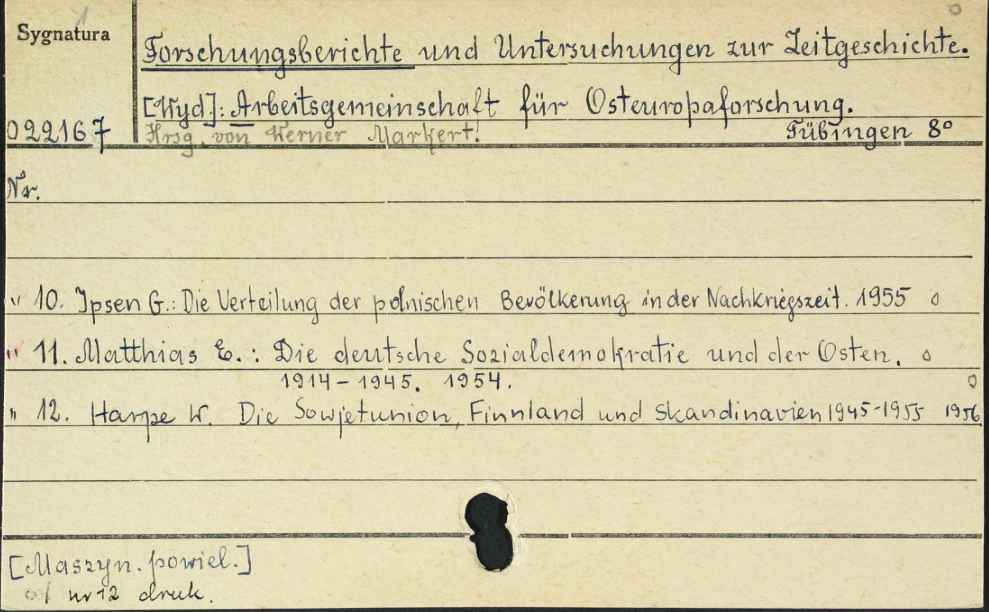 Sygnatura
Forschungsberichte und Untersuchungen zur Zeitgeschichte.
[Wyd]: Arbeitsgemeinschaft für Osteuropaforschung.
022167
Hrsg. von Werner Markert.
Tübingen 8°
Nr.
" 10. Ipsen G.: Die Verteilung der polnischen Bevölkerung in der Nachkriegszeit. 1955 o
" 11. Matthias E.: Die deutsche Sozialdemokratie und der Osten. o
1914-1945. 1954. o
" 12. Harpe W. Die Sowjetunion, Finnland und Skandinavien 1945-1955 1956.
[Maszyn. powiel.]
od nr 12 druk.